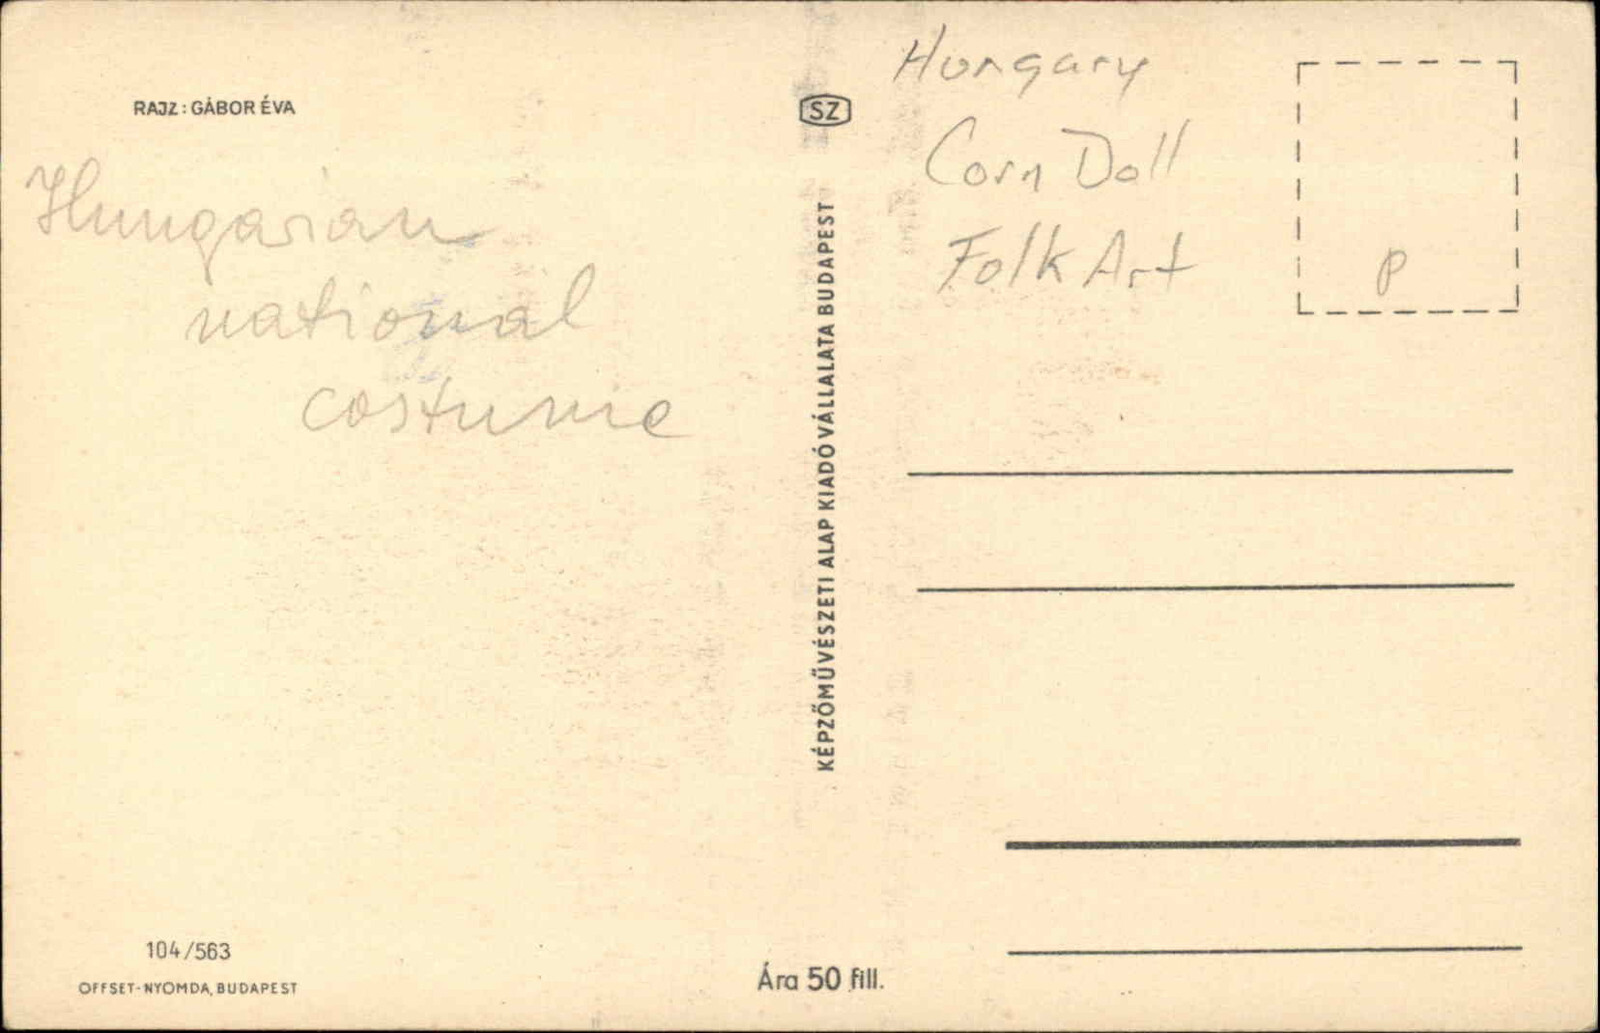 RAJZ: GÁBOR ÉVA
Hungarian
national
costume
104/563
OFFSET-NYOMDA, BUDAPEST
SZ
KÉPZŐMŰVÉSZETI ALAP KIADÓVÁLLALATA BUDAPEST
Ára 50 fill.
Hungary
Corn Doll
Folk Art
P